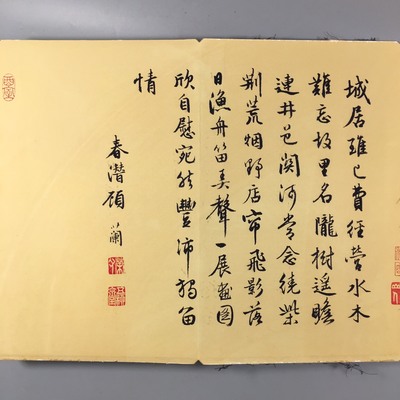 城居雖已費經營水木
難忘故里名隴樹遙瞻
連井邑關河常念繞柴
荊荒烟野店帘飛影落
日漁舟笛弄聲一展畫圖
欣自慰宛然豐沛獨留
情
春潛顧蘭